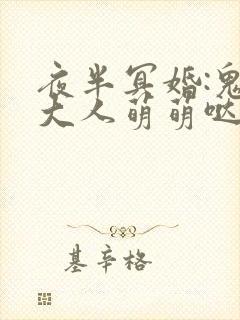 夜半冥婚:鬼
大人萌萌哒
基辛格